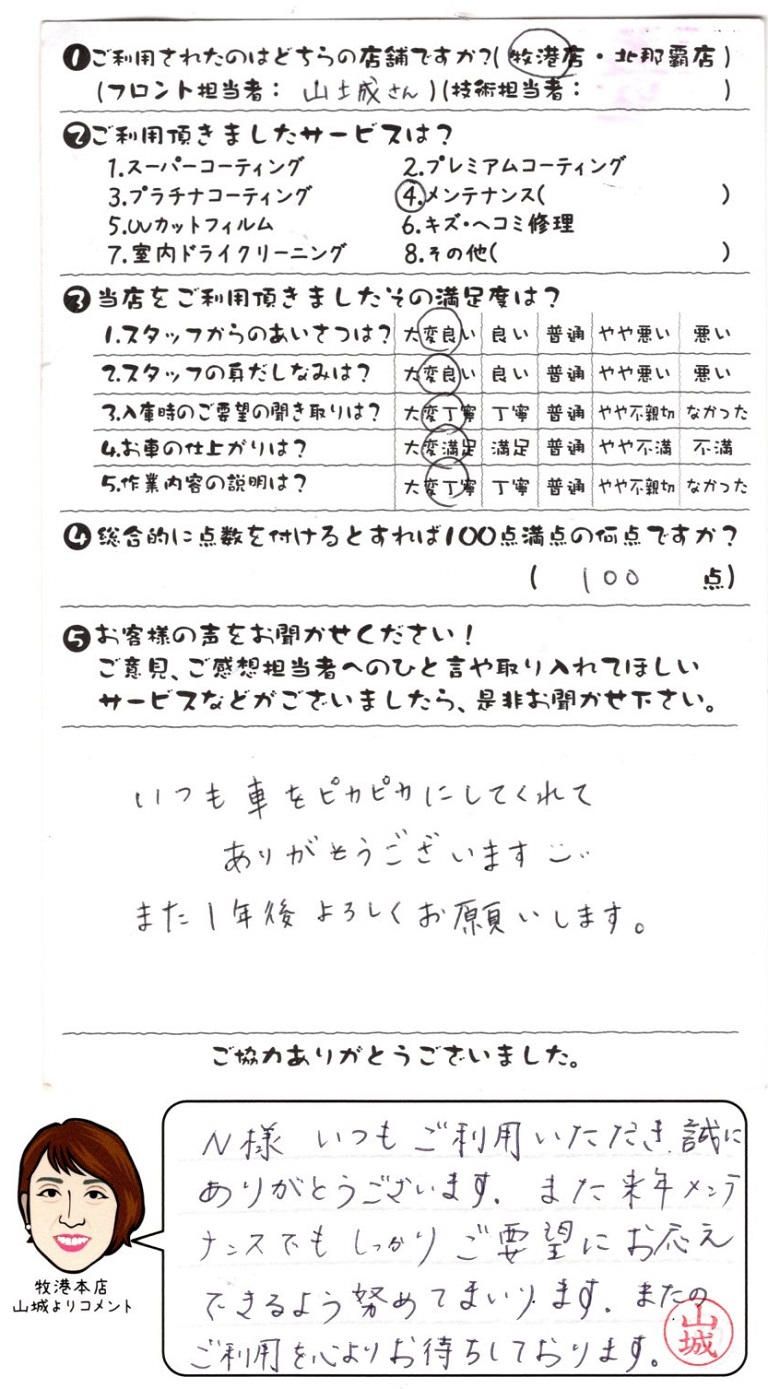 ❶ご利用されたのはどちらの店舗ですか?(牧港店・北那覇店)
(フロント担当者: 山城さん)(技術担当者: )
❷ご利用頂きましたサービスは?
1.スーパーコーティング 2.プレミアムコーティング
3.プラチナコーティング 4.メンテナンス( )
5.UVカットフィルム 6.キズ・ヘコミ修理
7.室内ドライクリーニング 8.その他( )
❸当店をご利用頂きましたその満足度は?
1.スタッフからのあいさつは? 大変良い 良い 普通 やや悪い 悪い
2.スタッフの身だしなみは? 大変良い 良い 普通 やや悪い 悪い
3.入庫時のご要望の聞き取りは? 大変丁寧 丁寧 普通 やや不親切 なかった
4.お車の仕上がりは? 大変満足 満足 普通 やや不満 不満
5.作業内容の説明は? 大変丁寧 丁寧 普通 やや不親切 なかった
❹総合的に点数を付けるとすれば100点満点の何点ですか?
( 100 点)
❺お客様の声をお聞かせください!
ご意見、ご感想担当者へのひと言や取り入れてほしい
サービスなどがございましたら、是非お聞かせ下さい。
いつも車をピカピカにしてくれて
ありがとうございます
また1年後よろしくお願いします。
ご協力ありがとうございました。
N様 いつもご利用いただき、誠に
ありがとうございます。また来年メンテ
ナンスでもしっかりご要望にお応え
できるよう努めてまいります。またの
ご利用を心よりお待ちしております。
山城
牧港本店
山城よりコメント